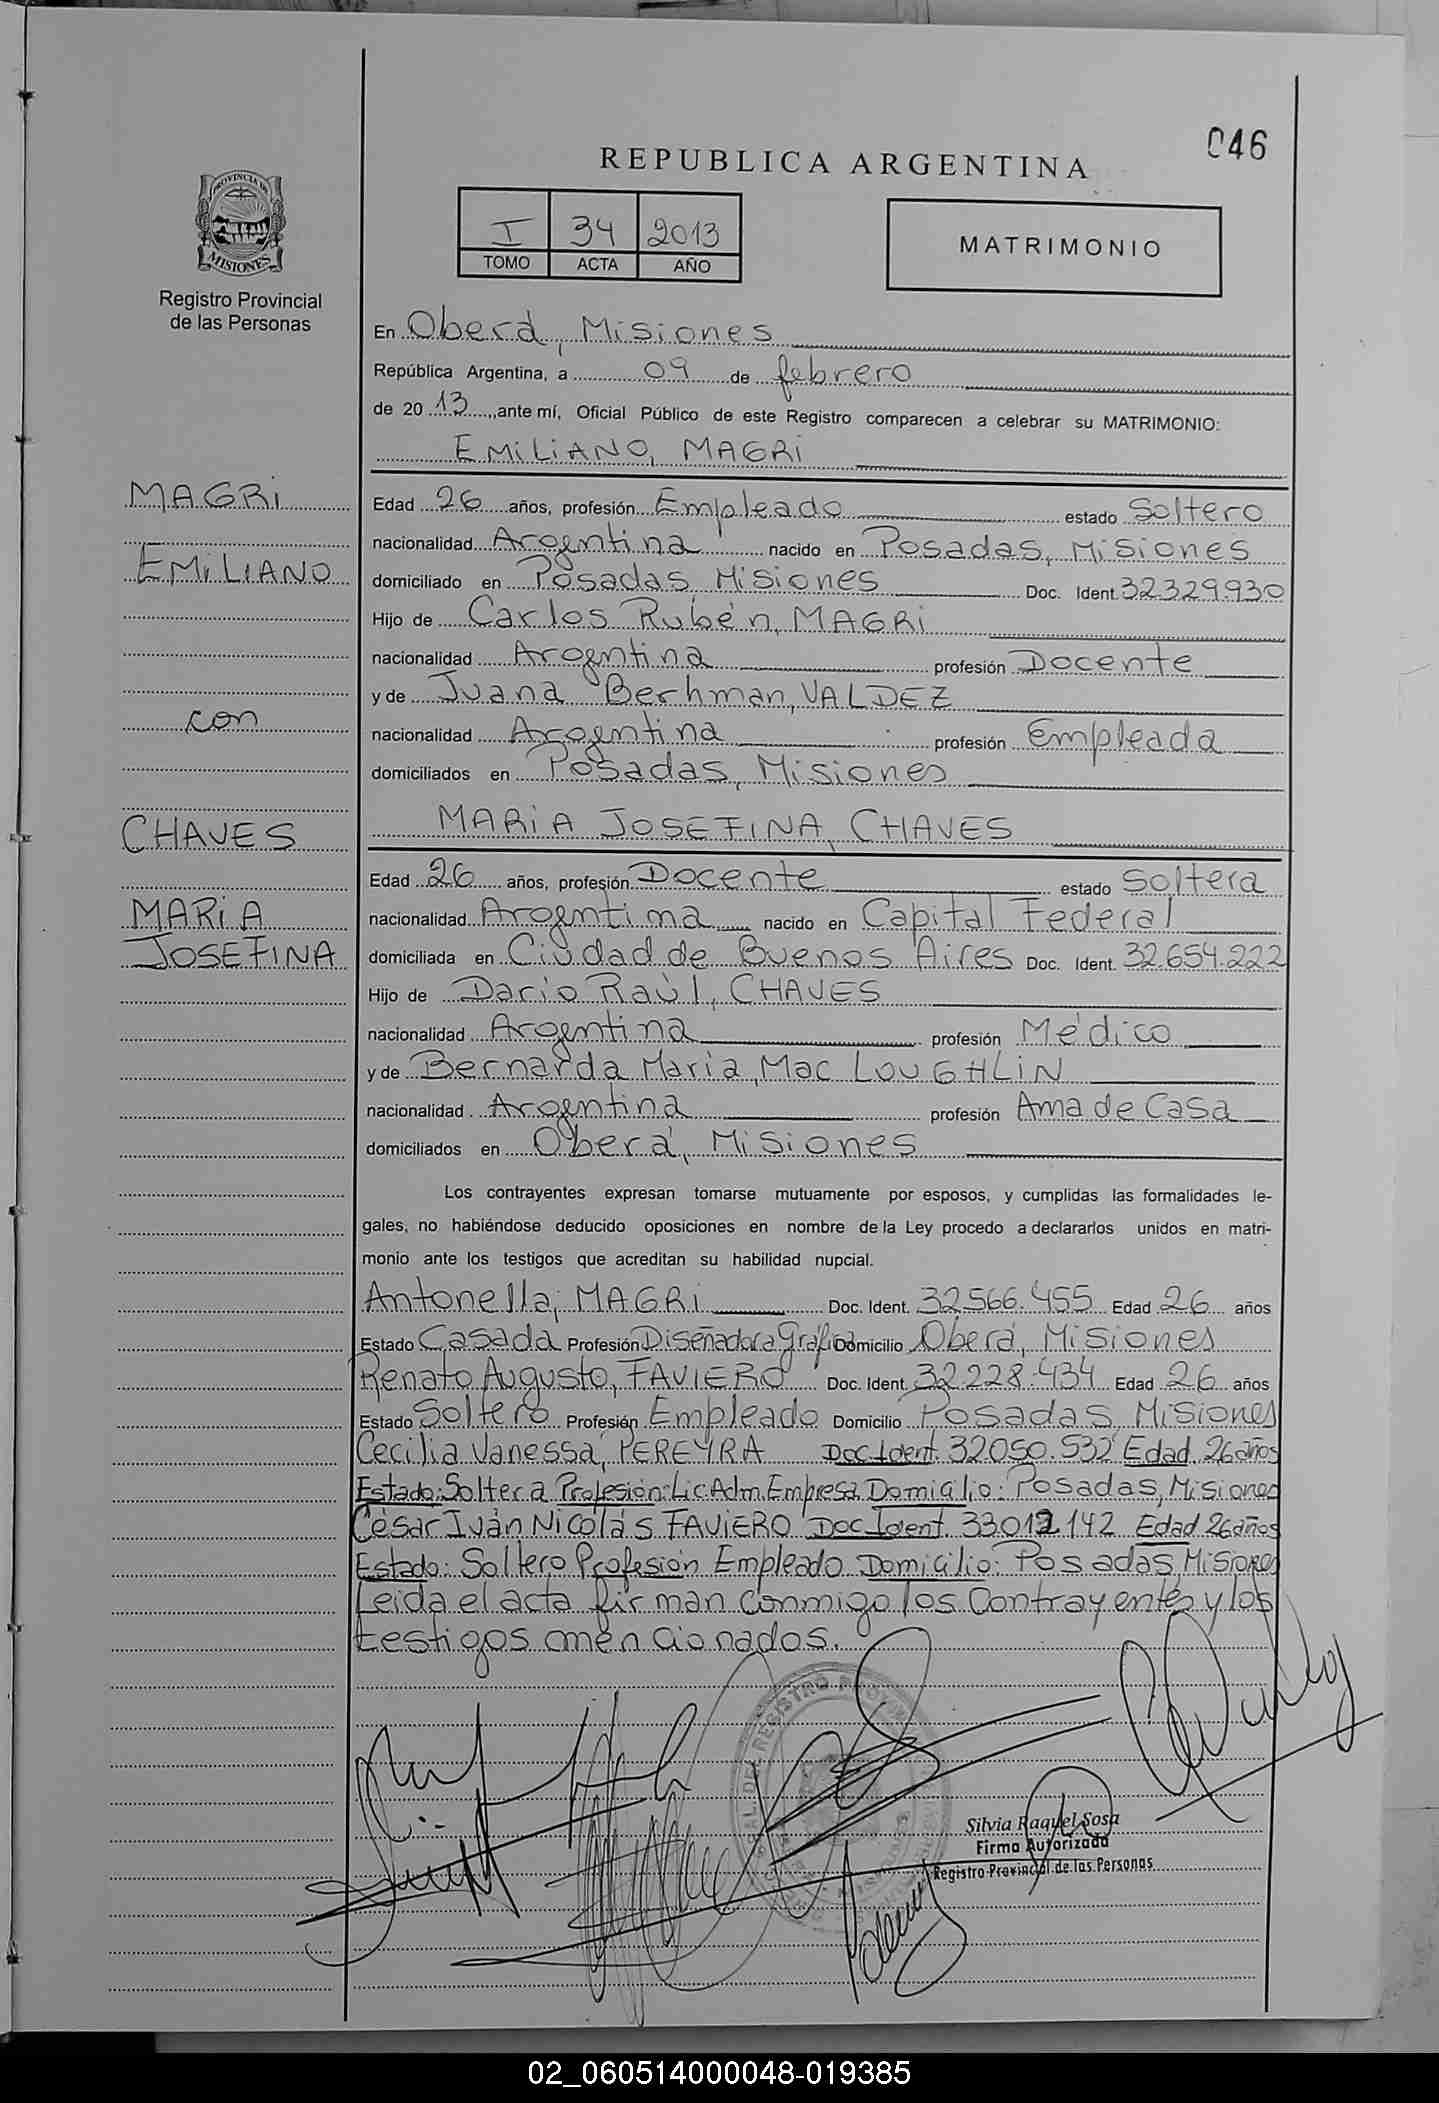 046
REPUBLICA ARGENTINA
PROVINCIA DE
MISIONES
Registro Provincial
de las Personas
I 34 2013
TOMO ACTA AÑO
MATRIMONIO
En Oberá, Misiones
República Argentina, a 09 de febrero
de 20 13 ante mí, Oficial Público de este Registro comparecen a celebrar su MATRIMONIO:
EMILIANO, MAGRI
MAGRI
EMILIANO
con
CHAVES
MARIA
JOSEFINA
Edad 26 años, profesión Empleado estado Soltero
nacionalidad Argentina nacido en Posadas, Misiones
domiciliado en Posadas Misiones Doc. Ident. 32329.930
Hijo de Carlos Rubén, MAGRI
nacionalidad Argentina profesión Docente
y de Juana Berhman, VALDEZ
nacionalidad Argentina profesión Empleada
domiciliados en Posadas, Misiones
MARIA JOSEFINA, CHAVES
Edad 26 años, profesión Docente estado Soltera
nacionalidad Argentina nacido en Capital Federal
domiciliada en Ciudad de Buenos Aires Doc. Ident. 32.654.222
Hijo de Darío Raúl, CHAVES
nacionalidad Argentina profesión Médico
y de Bernarda Maria, Mac LOUGHLIN
nacionalidad Argentina profesión Ama de Casa
domiciliados en Oberá, Misiones
Los contrayentes expresan tomarse mutuamente por esposos, y cumplidas las formalidades le-
gales, no habiéndose deducido oposiciones en nombre de la Ley procedo a declararlos unidos en matri-
monio ante los testigos que acreditan su habilidad nupcial.
Antonella, MAGRI Doc. Ident. 32566.455 Edad 26 años
Estado Casada Profesión Diseñadora Gráfica Domicilio Oberá, Misiones
Renato Augusto, FAVIERO Doc. Ident. 32.228.434 Edad 26 años
Estado Soltero Profesión Empleado Domicilio Posadas, Misiones
Cecilia Vanessa, PEREYRA Doc. Ident. 32050.532 Edad 26 años
Estado: Soltera Profesión: Lic. Adm. Empresa Domicilio: Posadas, Misiones
César Iván Nicolás FAVIERO Doc Ident. 33012142 Edad 26 años
Estado: Soltero Profesión Empleado Domicilio: Posadas, Misiones
Leida el acta firman conmigo los Contrayentes y los
testigos mencionados.
Silvia Raquel Sosa
Firma Autorizada
Registro Provincial de las Personas
02_060514000048-019385